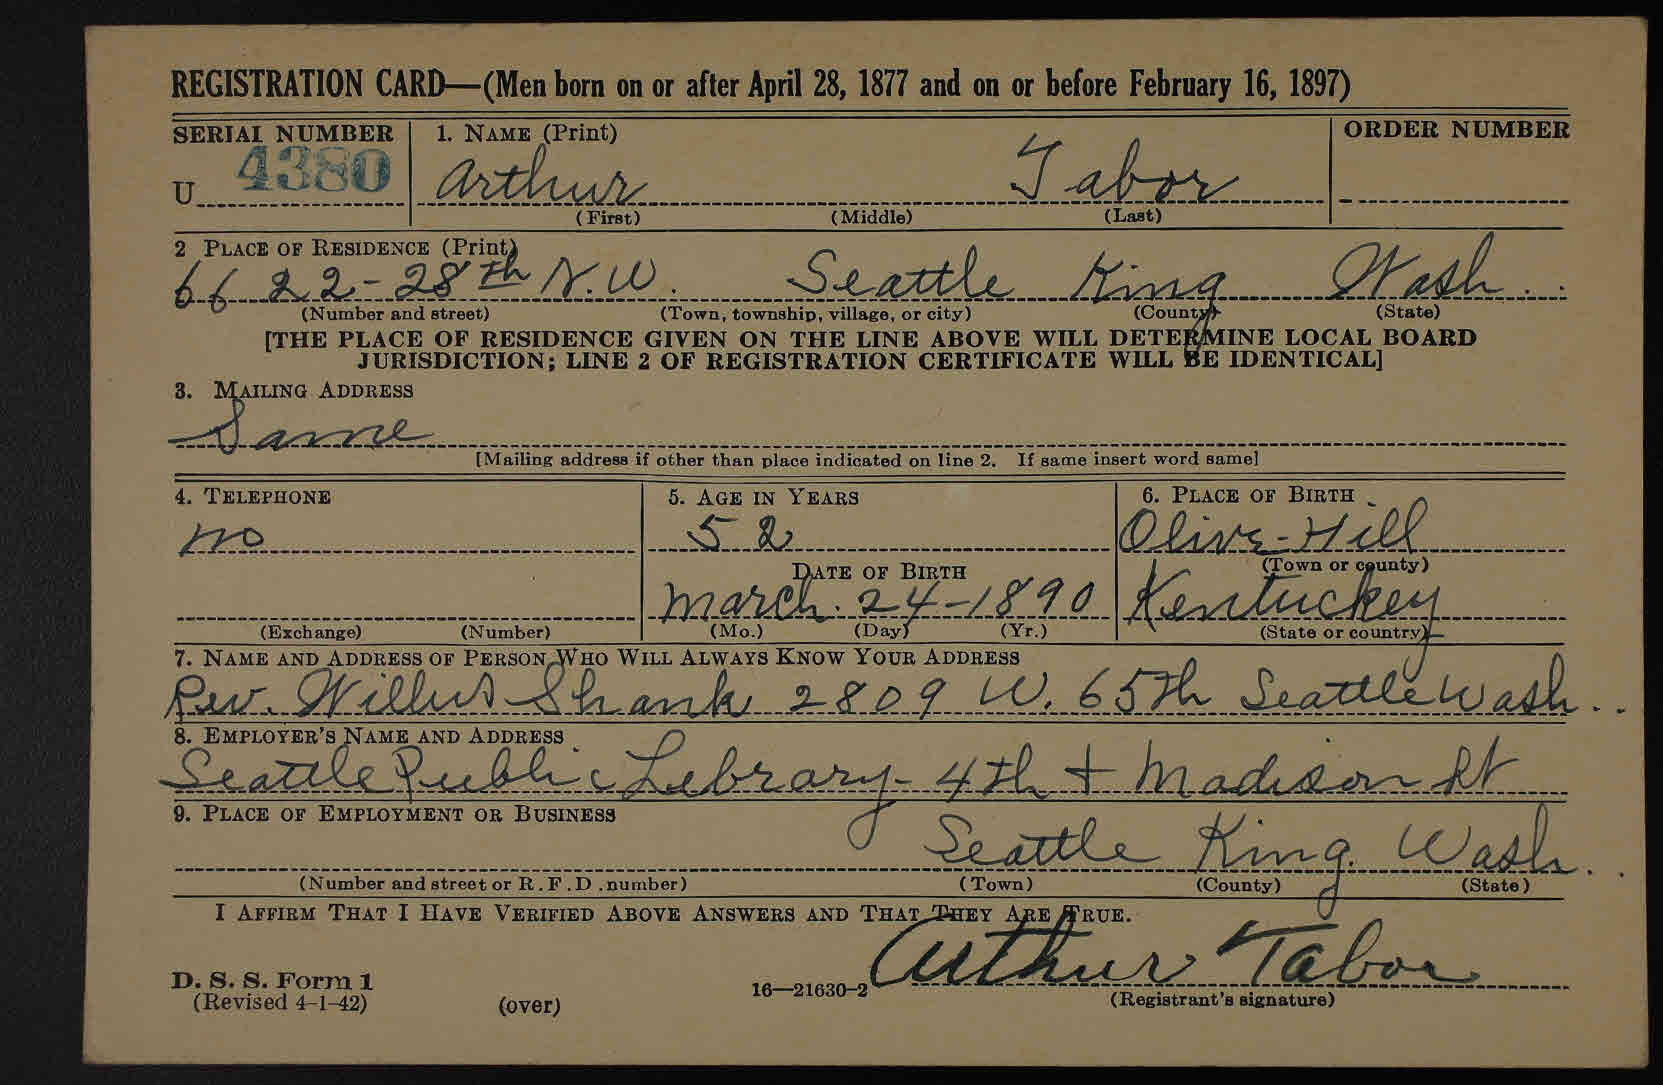 REGISTRATION CARD—(Men born on or after April 28, 1877 and on or before February 16, 1897)
SERIAL NUMBER 1. NAME (Print) ORDER NUMBER
U 4380 Arthur Tabor
(First) (Middle) (Last)
2 PLACE OF RESIDENCE (Print)
6622-28th N.W. Seattle King Wash.
(Number and street) (Town, township, village, or city) (County) (State)
[THE PLACE OF RESIDENCE GIVEN ON THE LINE ABOVE WILL DETERMINE LOCAL BOARD
JURISDICTION; LINE 2 OF REGISTRATION CERTIFICATE WILL BE IDENTICAL]
3. MAILING ADDRESS
Same
[Mailing address if other than place indicated on line 2. If same insert word same]
4. TELEPHONE 5. AGE IN YEARS 6. PLACE OF BIRTH
no 52 Olive-Hill
DATE OF BIRTH (Town or county)
March. 24-1890 Kentucky
(Exchange) (Number) (Mo.) (Day) (Yr.) (State or country)
7. NAME AND ADDRESS OF PERSON WHO WILL ALWAYS KNOW YOUR ADDRESS
Rev. Willis Shank 2809 W. 65th Seattle Wash.
8. EMPLOYER'S NAME AND ADDRESS
Seattle Public Library- 4th + Madison St
9. PLACE OF EMPLOYMENT OR BUSINESS
Seattle King. Wash.
(Number and street or R.F.D. number) (Town) (County) (State)
I AFFIRM THAT I HAVE VERIFIED ABOVE ANSWERS AND THAT THEY ARE TRUE.
Arthur Tabor
D. S. S. Form 1
(Revised 4-1-42) (over) 16—21630-2 (Registrant's signature)